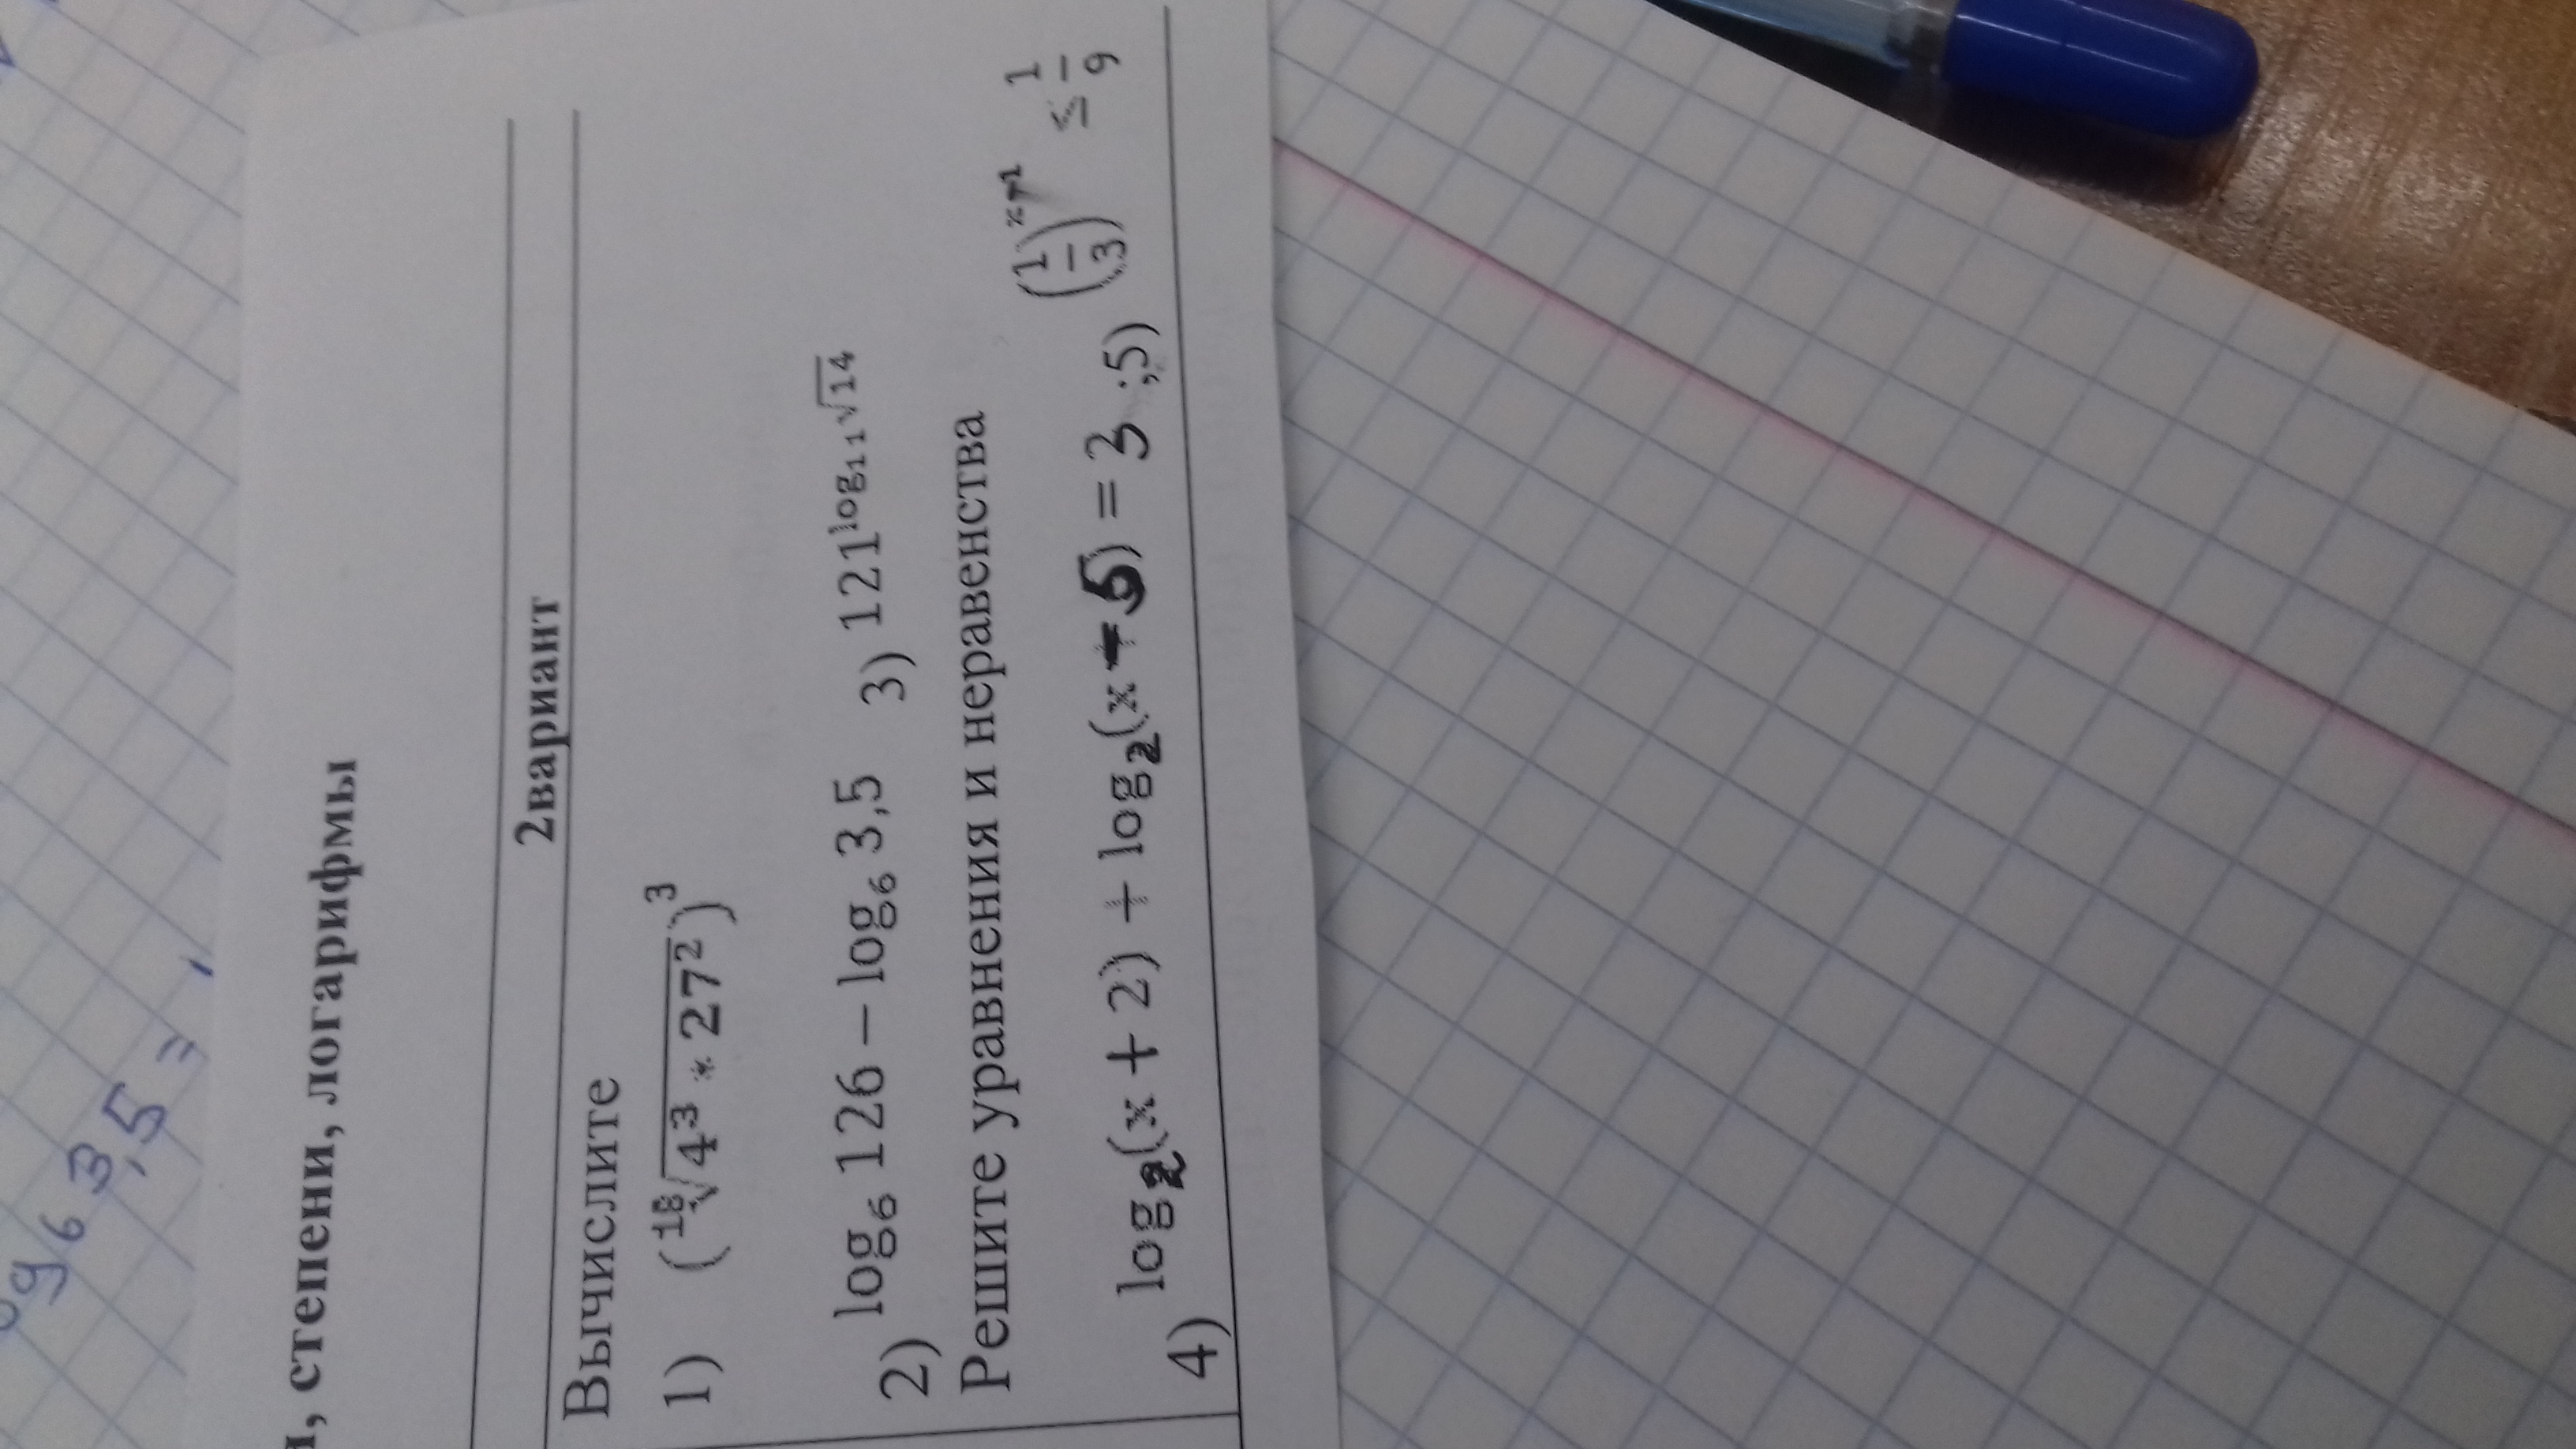 3,5 =
, степени, логарифмы
2вариант
Вычислите
1) (¹⁸√(4³ * 27²))³
2) log₆ 126 − log₆ 3,5 3) 121^(log₁₁√14)
Решите уравнения и неравенства
4) log₂(x + 2) + log₂(x − 5) = 3 ;5) (1/3)^x ≤ 1/9